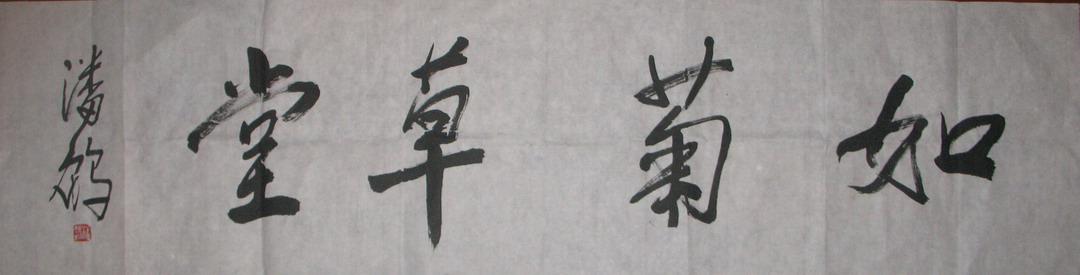 如菊草堂
潘鹤